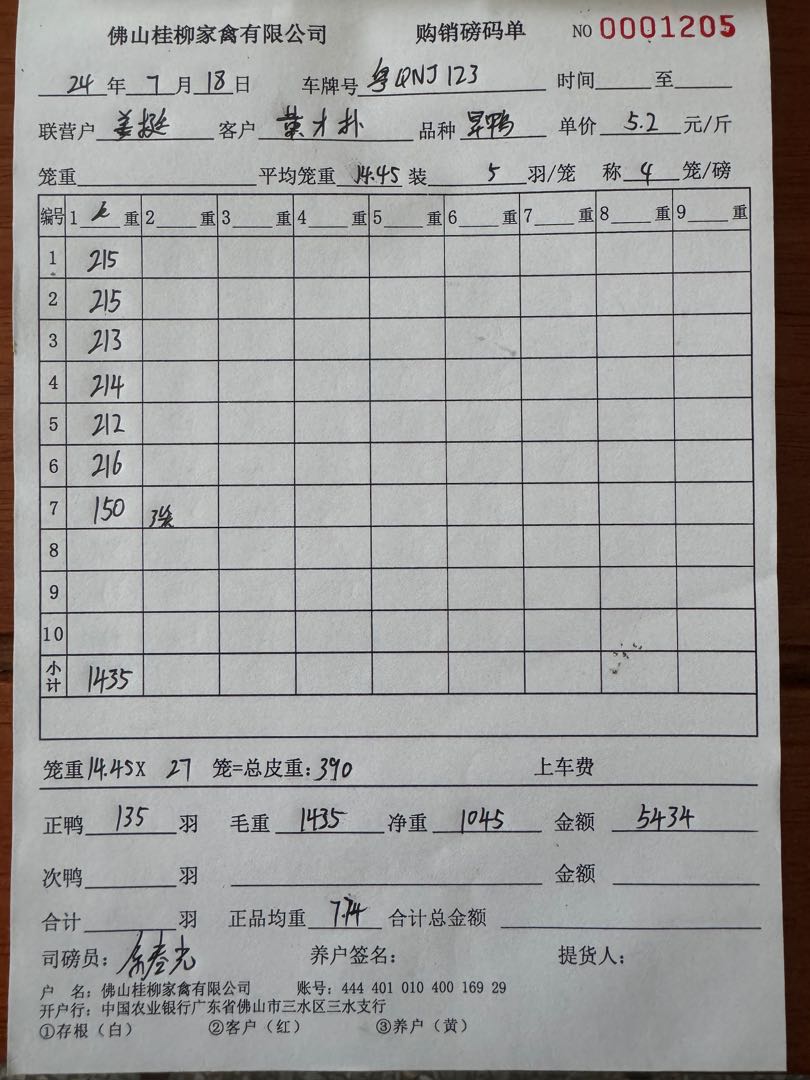 佛山桂柳家禽有限公司 购销磅码单 NO 0001205
24年7月18日 车牌号 粤QNJ123 时间 至
联营户 姜挺 客户 叶才朴 品种 旱鸭 单价 5.2 元/斤
笼重 平均笼重 14.45 装 5 羽/笼 称 4 笼/磅
编号 1 重 2 重 3 重 4 重 5 重 6 重 7 重 8 重 9 重
1 215
2 215
3 213
4 214
5 212
6 216
7 150 3笼
8
9
10
小计 1435
笼重14.45X 27 笼=总皮重:390 上车费
正鸭 135 羽 毛重 1435 净重 1045 金额 5434
次鸭 羽 金额
合计 羽 正品均重 7.74 合计总金额
司磅员: 养户签名: 提货人:
户 名: 佛山桂柳家禽有限公司 账号: 444 401 010 400 169 29
开户行: 中国农业银行广东省佛山市三水区三水支行
①存根(白) ②客户(红) ③养户(黄)